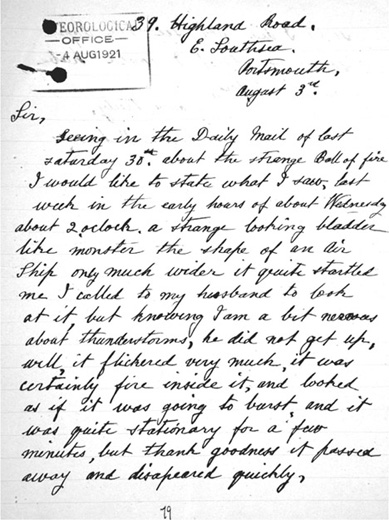 METEOROLOGICAL
OFFICE
4 AUG 1921
39. Highland Road.
E. Southsea.
Portsmouth,
August 3rd.
Sir,
Seeing in the Daily Mail of last
Saturday 30th. about the strange Ball of fire
I would like to state what I saw, last
week in the early hours of about Wednesday
about 2,oclock. a strange looking bladder
like monster the shape of an Air
Ship only much wider it quite startled
me I called to my husband to look
at it, but knowing I am a bit nervous
about thunderstorms, he did not get up,
well, it flickered very much, it was
certainly fire inside it, and looked
as if it was going to burst, and it
was quite stationary for a few
minutes, but thank goodness it passed
away and disapeared quickly,
79